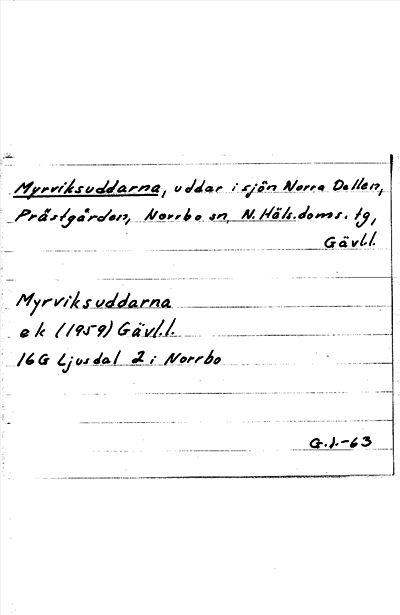 Myrviksuddarna, uddar i sjön Norra Dellen,
Prästgården, Norrbo sn, N. Häls. doms. tg,
Gävl.l.
Myrviksuddarna
ek (1959) Gävl.l.
16G Ljusdal 2 : Norrbo
G.J.-63